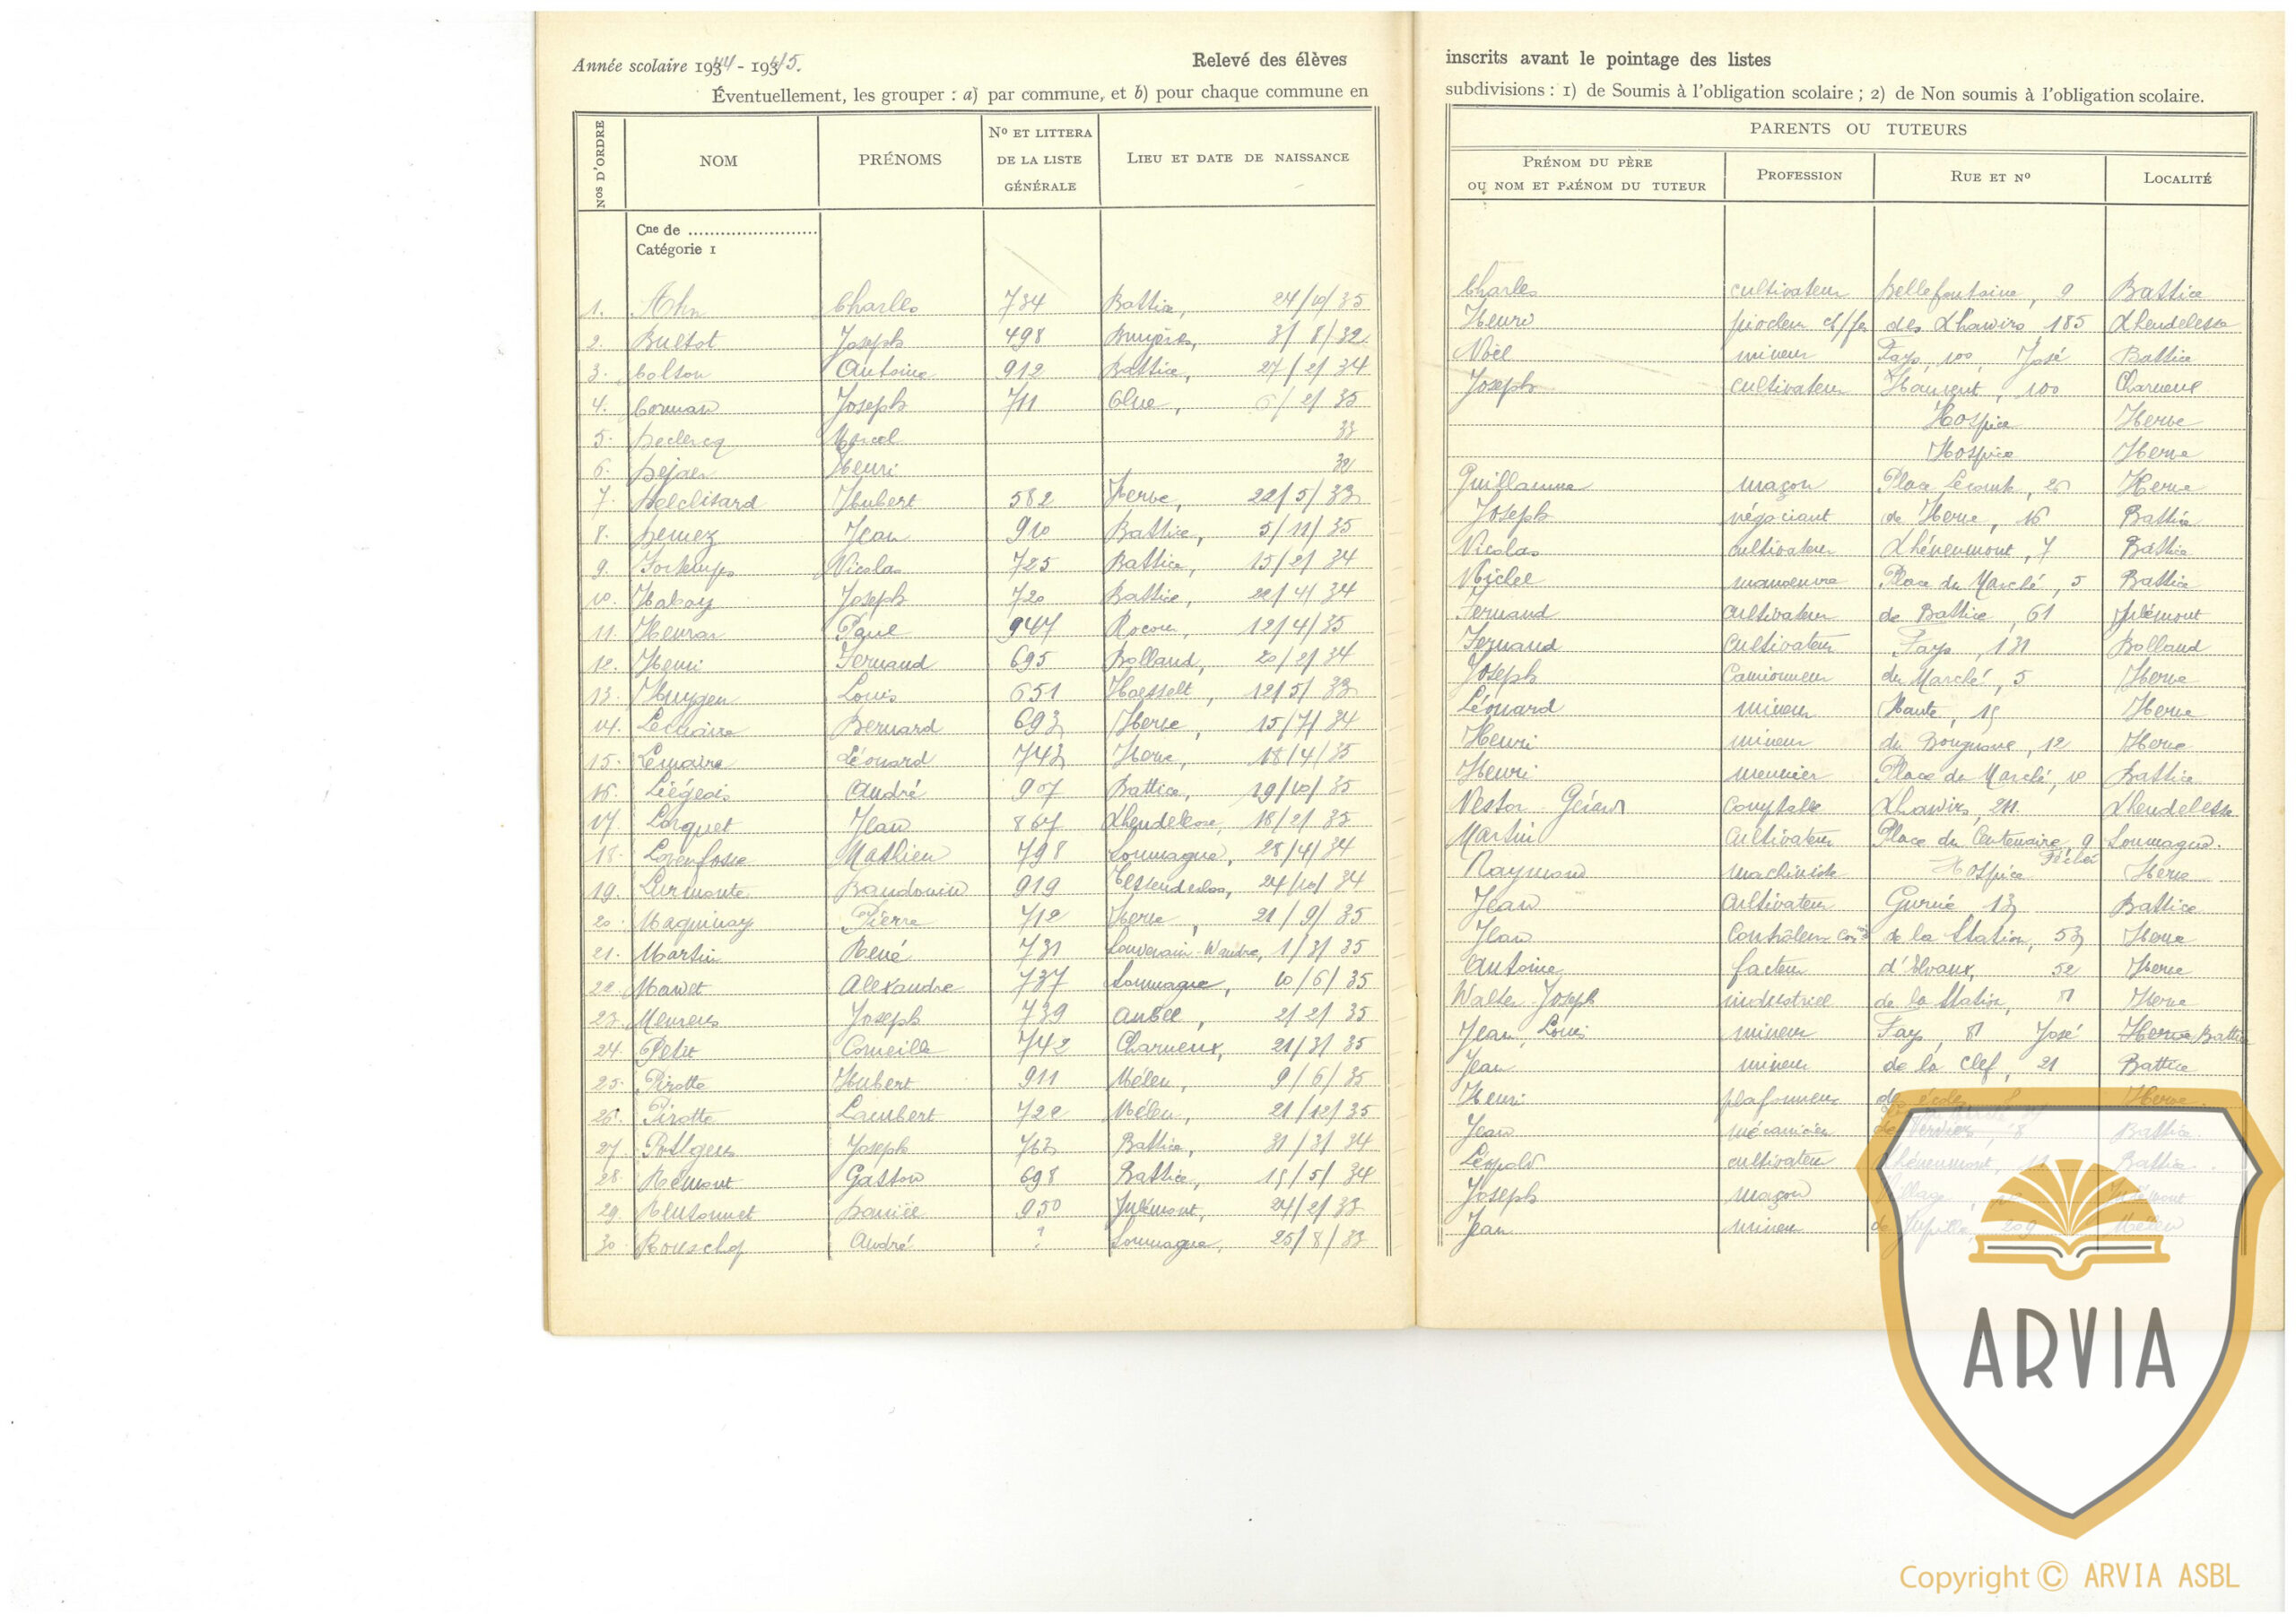 Année scolaire 1944 - 1945.
Relevé des élèves inscrits avant le pointage des listes
Éventuellement, les grouper : a) par commune, et b) pour chaque commune en subdivisions : 1) de Soumis à l'obligation scolaire ; 2) de Non soumis à l'obligation scolaire.
Nos D'ORDRE NOM PRÉNOMS No ET LITTERA DE LA LISTE GÉNÉRALE LIEU ET DATE DE NAISSANCE
PARENTS OU TUTEURS
PRÉNOM DU PÈRE OU NOM ET PRÉNOM DU TUTEUR PROFESSION RUE ET No LOCALITÉ
Cne de
Catégorie 1
1. Ahn Charles 734 Battice, 24/10/35 Charles cultivateur Bellefontaine, 9 Battice
2. Bultot Joseph 498 Bruyères, 3/8/32 Henri des Xhawirs 185 Xhendelesse
3. Colson Antoine 912 Battice, 27/2/34 Noël mineur Fays, 100, José Battice
4. Corman Joseph 711 Clue, 6/2/35 Joseph cultivateur 100 Charneux
5. Declercq Marcel 33 Hospice Herve
6. Dejaer Henri 32 Hospice Herve
7. Hubert 582 Herve, 22/5/33 Guillaume maçon Place Lecomte, 26 Herve
8. Demez Jean 910 Battice, 5/11/35 Joseph négociant de Herve, 16 Battice
9. Fortemps Nicolas 725 Battice, 15/2/34 Nicolas cultivateur Xhénemont, 7 Battice
10. Habay Joseph 720 Battice, 22/4/34 Michel manoeuvre Place du Marché, 5 Battice
11. Paul 947 Rocour, 12/4/35 Fernand cultivateur de Battice, 61 Julémont
12. Henri Fernand 695 Bolland, 20/2/34 Fernand cultivateur Fays, 131 Bolland
13. Huygen Louis 651 Haesselt, 12/5/33 Joseph Camionneur du Marché, 5 Herve
14. Lemaire Bernard 693 Herve, 15/7/34 Léonard mineur Haute, 15 Herve
15. Lemaire Léonard 743 Herve, 18/4/35 Henri mineur 12 Herve
16. Liégeois André 907 Battice, 19/10/35 Henri meunier Place du Marché, 10 Battice
17. Lorquet Jean 867 Xhendelesse, 18/2/35 Nestor Gérard Comptable Xhawirs, 211 Xhendelesse
18. Lovenfosse Mathieu 798 Soumagne, 28/4/34 Martin Cultivateur Place du Centenaire, 9 Soumagne.
19. Baudouin 919 Tessenderloo, 24/10/34 Raymond machiniste Hospice Herve
20. Maquinay Pierre 712 Herve, 21/9/35 Jean Cultivateur Gurné 13 Battice
21. Martin René 731 Souverain-Wandre, 1/3/35 Jean Contrôleur de la Station, 53 Herve
22. Mawet Alexandre 737 Soumagne, 10/6/35 Antoine facteur d'Elvaux, 52 Herve
23. Meurens Joseph 739 Aubel, 2/2/35 Walter Joseph industriel de la Station, 81 Herve
24. Petit Corneille 742 Charneux, 21/3/35 Jean, Louis mineur Fays, 81 José Herve Battice
25. Pirotte Hubert 911 Mélen, 9/6/35 Jean mineur de la Clef, 21 Battice
26. Pirotte Lambert 722 Mélen, 21/12/35 Henri plafonneur des écoles Herve
27. Joseph 763 Battice, 31/3/34 Jean mécanicien de Verviers, 18 Battice.
28. Rémont Gaston 698 Battice, 15/5/34 Léopold cultivateur Xhénemont, 11 Battice.
29. Daniël 950 Julémont, 24/2/33 Joseph maçon Village, Julémont
30. André ? Soumagne, 25/8/33 Jean mineur de Jupille, 209 Mélen
ARVIA
Copyright © ARVIA ASBL